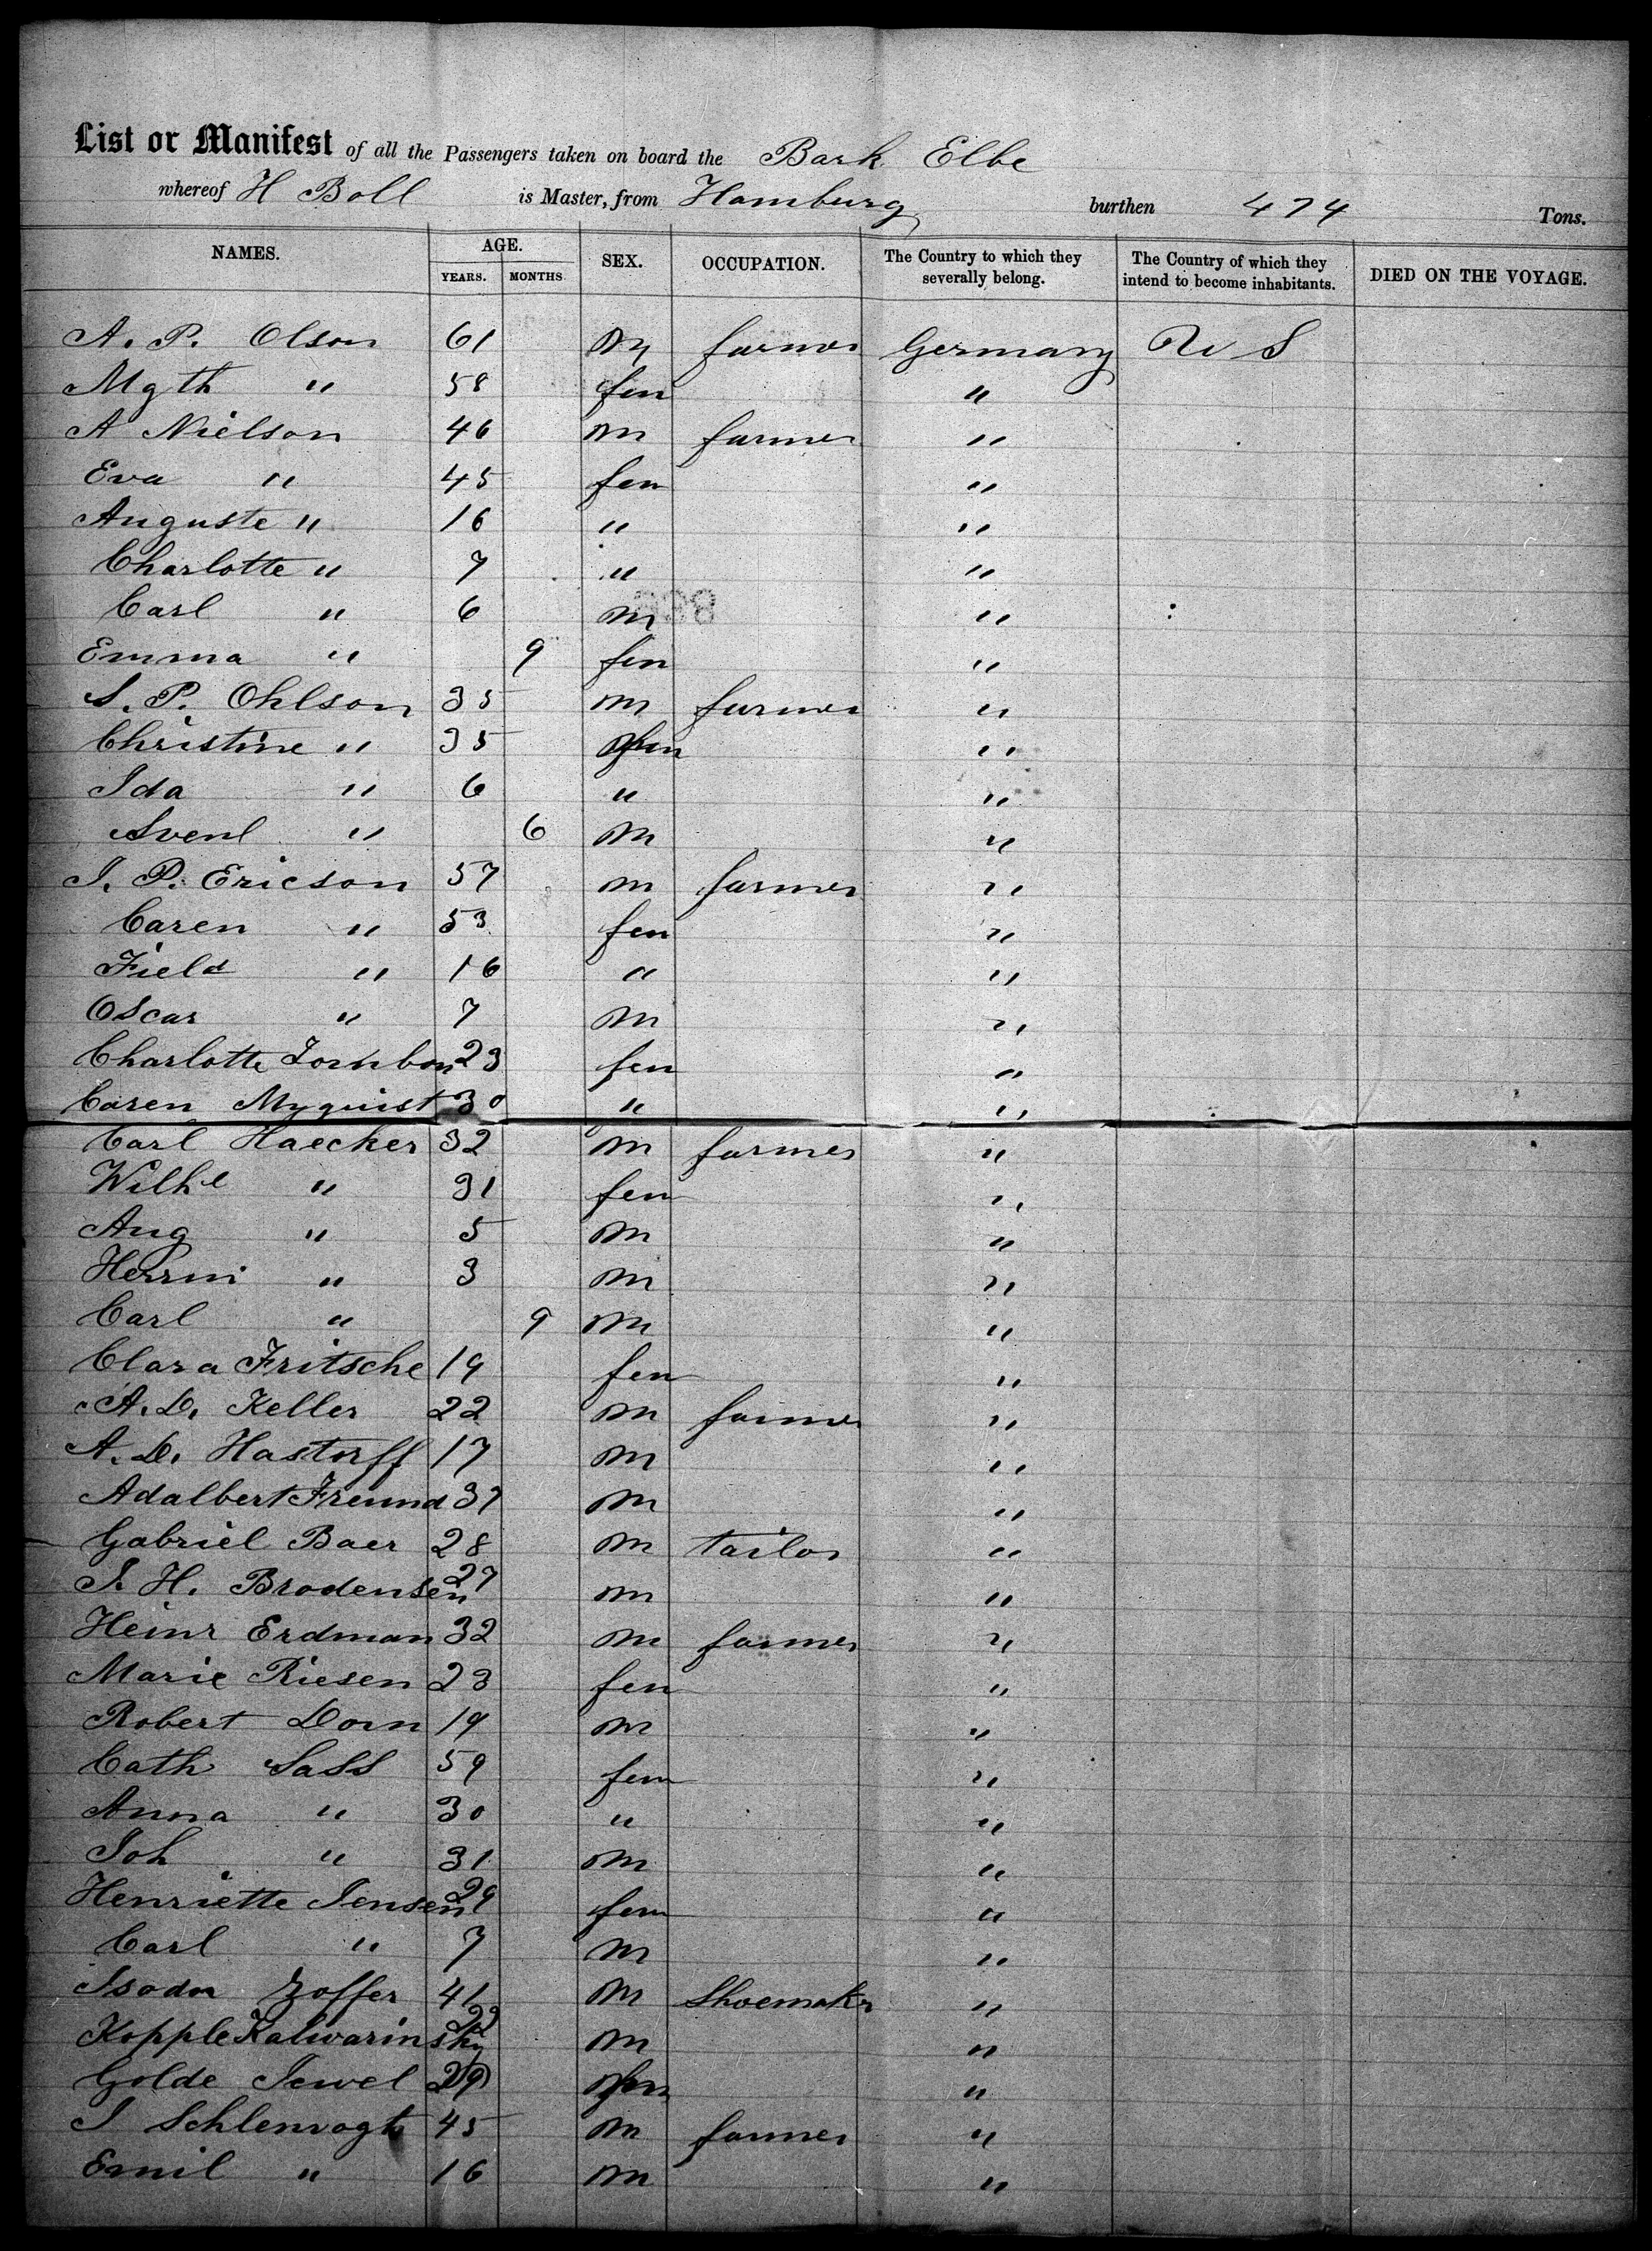 List or Manifest of all the Passengers taken on board the Bark Elbe
whereof H Boll is Master, from Hamburg burthen 474 Tons.
NAMES. AGE. YEARS. MONTHS SEX. OCCUPATION. The Country to which they severally belong. The Country of which they intend to become inhabitants. DIED ON THE VOYAGE.
A. P. Olson 61 m farmer Germany U S
Mgth " 58 fem "
A Nielson 46 m farmer "
Eva " 45 fem "
Auguste " 16 " "
Charlotte " 7 " "
Carl " 6 m "
Emma " 9 fem "
S. P. Ohlson 35 m farmer "
Christine " 35 fem "
Ida " 6 " "
Svenl " 6 m "
I. P. Ericson 57 m farmer "
Caren " 53 fem "
Field " 16 " "
Oscar " 7 m "
Charlotte 23 fem "
Caren Myquist 30 " "
Carl Haecker 32 m farmer "
Wilhe " 31 fem "
Aug " 5 m "
Hermi " 3 m "
Carl " 9 m "
Clara Fritsche 19 fem "
A. D. Keller 22 m farmer "
A. D. Hastorff 17 m "
Adalbert Freund 37 m "
Gabriel Baer 28 m tailor "
I. H. Brodensen 27 m "
Heinr Erdman 32 m farmer "
Marie Riesen 23 fem "
Robert Dorn 19 m "
Cath Sass 59 fem "
Anna " 30 " "
Joh " 31 m "
Henriette Jensen 29 fem "
Carl " 7 m "
Isodor Zoffer 41 m Shoemaker "
Kopple Kalwarinsky 22 m "
Golde Jewel 29 fem "
I Schlenvogt 45 m farmer "
Emil " 16 m "